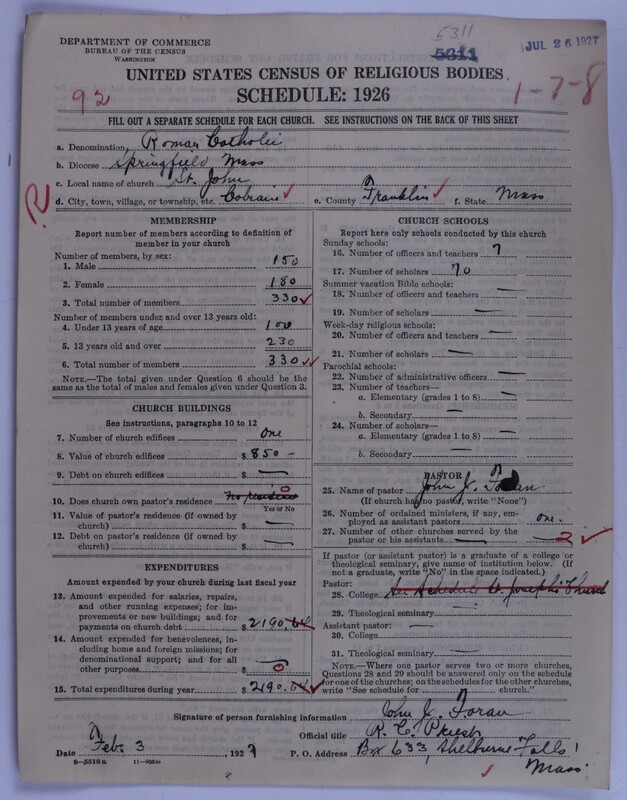 5311
5311
JUL 26 1927
DEPARTMENT OF COMMERCE
BUREAU OF THE CENSUS
WASHINGTON
UNITED STATES CENSUS OF RELIGIOUS BODIES
SCHEDULE: 1926
92
1-7-8
FILL OUT A SEPARATE SCHEDULE FOR EACH CHURCH. SEE INSTRUCTIONS ON THE BACK OF THIS SHEET
a. Denomination Roman Catholic
b. Diocese Springfield Mass
c. Local name of church St. John
R
d. City, town, village, or township, etc. Colrain ✓ e. County Franklin ✓ f. State Mass
MEMBERSHIP
Report number of members according to definition of
member in your church
Number of members, by sex:
1. Male 150
2. Female 180
3. Total number of members 330 ✓
Number of members under and over 13 years old:
4. Under 13 years of age 100
5. 13 years old and over 230
6. Total number of members 330 ✓✓
NOTE.—The total given under Question 6 should be the
same as the total of males and females given under Question 3.
CHURCH BUILDINGS
See instructions, paragraphs 10 to 12
7. Number of church edifices one
8. Value of church edifices $ 850 –
9. Debt on church edifices $ —
10. Does church own pastor's residence No residence 0
Yes or No
11. Value of pastor's residence (if owned by
church) $ —
12. Debt on pastor's residence (if owned by
church) $ —
EXPENDITURES
Amount expended by your church during last fiscal year
13. Amount expended for salaries, repairs,
and other running expenses; for im-
provements or new buildings; and for
payments on church debt $ 2190.64
14. Amount expended for benevolences, in-
cluding home and foreign missions; for
denominational support; and for all
other purposes $ 0
15. Total expenditures during year $ 2190.64 ✓
CHURCH SCHOOLS
Report here only schools conducted by this church
Sunday schools:
16. Number of officers and teachers 7
17. Number of scholars 70
Summer vacation Bible schools:
18. Number of officers and teachers —
19. Number of scholars —
Week-day religious schools:
20. Number of officers and teachers —
21. Number of scholars —
Parochial schools:
22. Number of administrative officers —
23. Number of teachers—
a. Elementary (grades 1 to 8) —
b. Secondary —
24. Number of scholars—
a. Elementary (grades 1 to 8) —
b. Secondary —
PASTOR
25. Name of pastor John J. Foran
(If church has no pastor, write "None")
26. Number of ordained ministers, if any, em-
ployed as assistant pastors one.
27. Number of other churches served by the
pastor or his assistants — 2 ✓
If pastor (or assistant pastor) is a graduate of a college or
theological seminary, give name of institution below. (If
not a graduate, write "No" in the space indicated.)
Pastor:
28. College See Schedule St. Joseph's Church
29. Theological seminary —
Assistant pastor: —
30. College
31. Theological seminary —
NOTE.—Where one pastor serves two or more churches,
Questions 28 and 29 should be answered only on the schedule
for one of the churches; on the schedules for the other churches,
write "See schedule for church."
Signature of person furnishing information John J. Foran
Official title R. C. Priest
Date Feb. 3, 1927 P. O. Address Box 633, Shelburne Falls
Mass.
8—5518a 11—9051